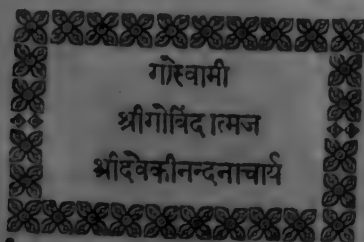 गोस्वामी
श्रीगोविंदात्मज
श्रीदेवकीनन्दनाचार्य